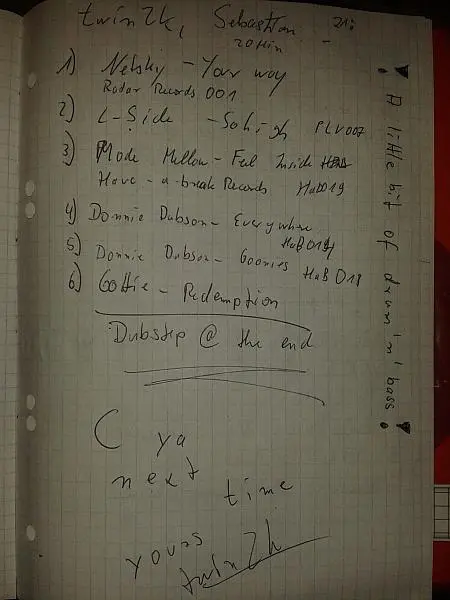 twin2k, Sebastian 21:
20 Min -
1) Netsky - Your way
Radar Records 001
2) L-Side - So high PLV007
3) Mode Mellow - Feel Inside
Have - a - break Records HaB019
4) Donnie Dubson - Everywhere
HaB 019
5) Donnie Dubson - Goonies HaB 018
6) Gottie - Redemption
Dubstep @ the end
C ya
next
time
yours
twin2k
! A little bit of drum 'n' bass !